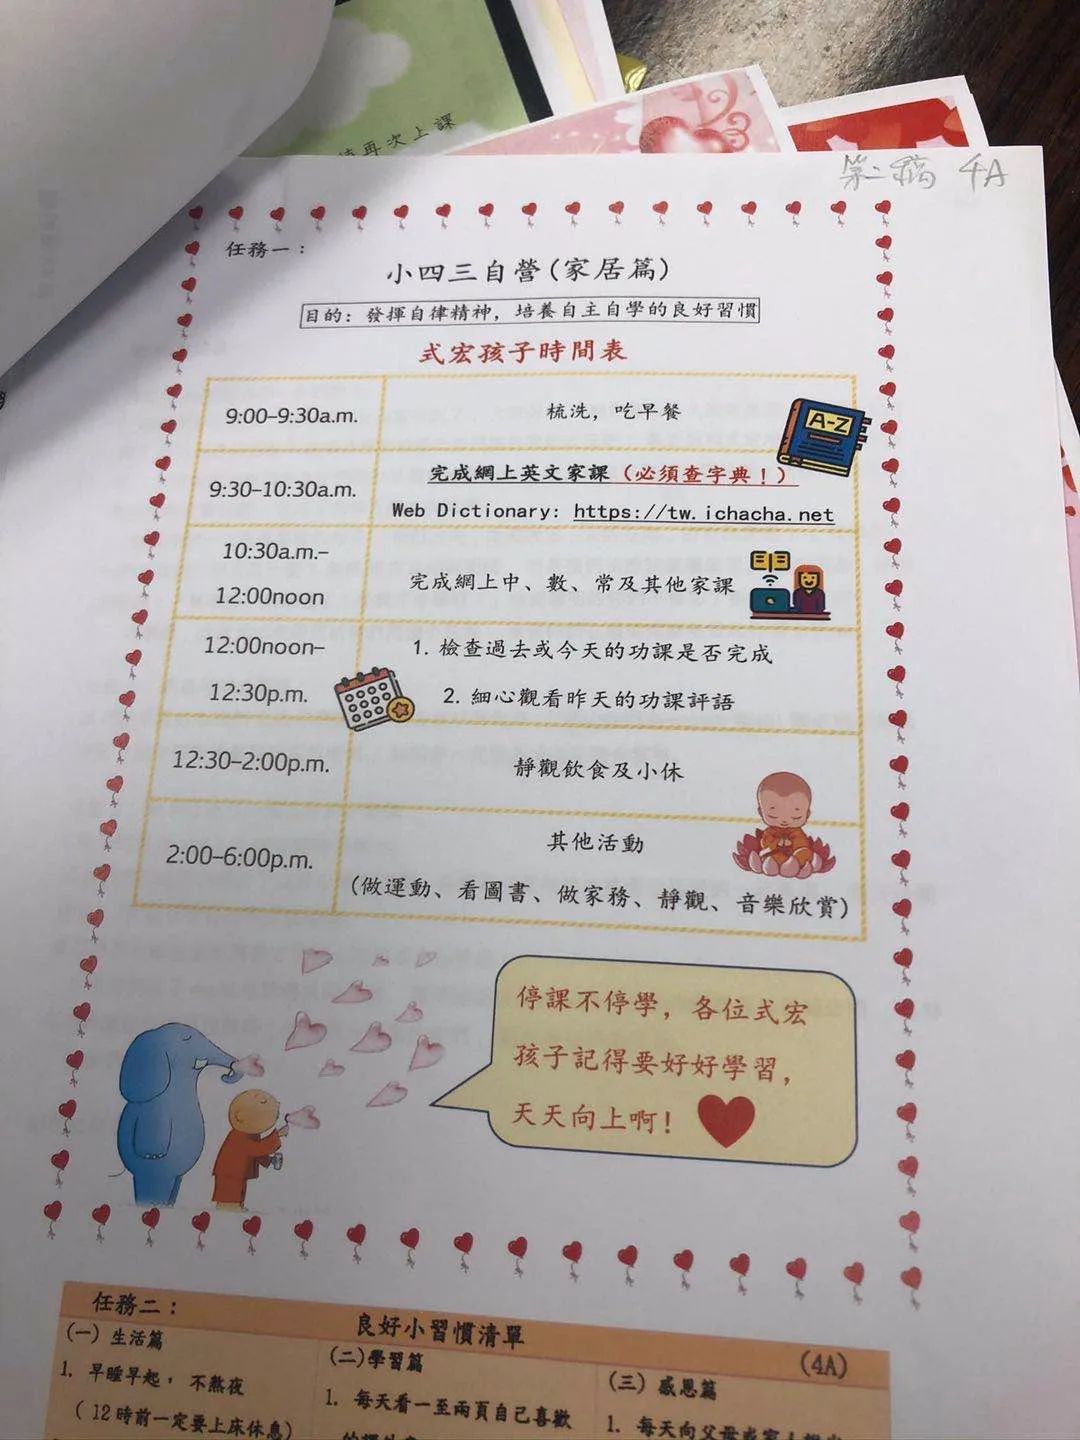 再次上課
第二稿 4A
任務一：
小四三自營(家居篇)
目的：發揮自律精神，培養自主自學的良好習慣
式宏孩子時間表
9:00–9:30a.m.
梳洗，吃早餐
A-Z
9:30–10:30a.m.
完成網上英文家課（必須查字典！）
Web Dictionary: https://tw.ichacha.net
10:30a.m.–
12:00noon
完成網上中、數、常及其他家課
12:00noon–
12:30p.m.
1. 檢查過去或今天的功課是否完成
2. 細心觀看昨天的功課評語
12:30–2:00p.m.
靜觀飲食及小休
2:00–6:00p.m.
其他活動
(做運動、看圖書、做家務、靜觀、音樂欣賞)
停課不停學，各位式宏
孩子記得要好好學習，
天天向上啊！
任務二：
良好小習慣清單
(4A)
(一) 生活篇
1. 早睡早起，不熬夜
( 12時前一定要上床休息)
(二)學習篇
1. 每天看一至兩頁自己喜歡
(三) 感恩篇
1. 每天向父母或家人